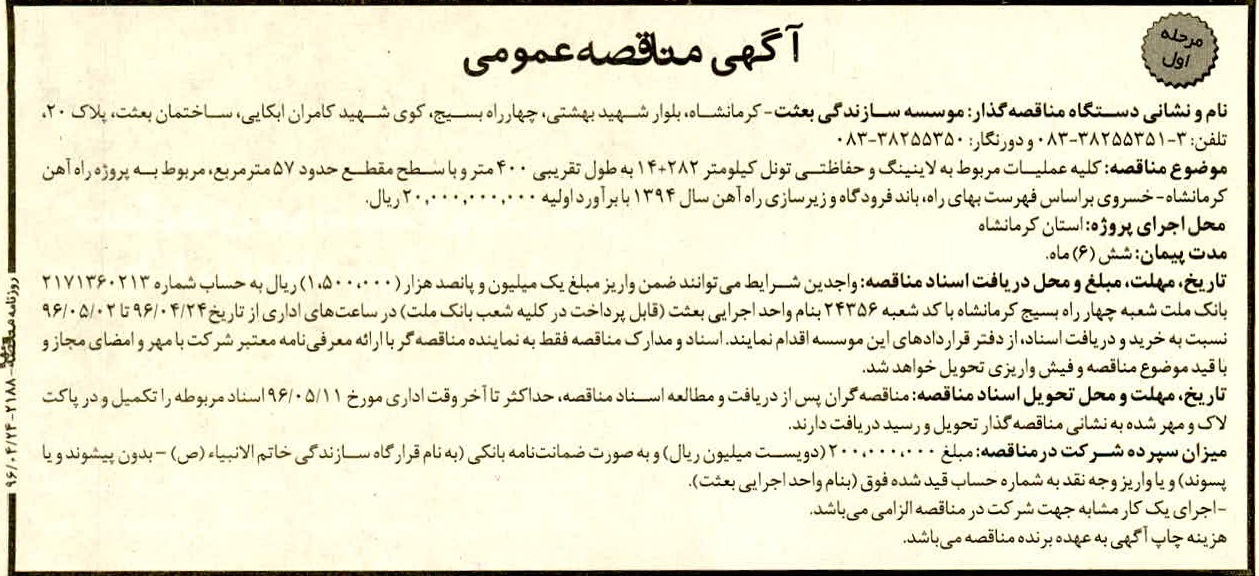 مرحله
اول
آگهی مناقصه عمومی
نام و نشانی دستگاه مناقصه‌گذار: موسسه سازندگی بعثت- کرمانشاه، بلوار شهید بهشتی، چهارراه بسیج، کوی شهید کامران ابکایی، ساختمان بعثت، پلاک ۲۰،
تلفن: ۳-۳۸۲۵۵۳۵۱-۰۸۳ و دورنگار: ۳۸۲۵۵۳۵۰-۰۸۳
موضوع مناقصه: کلیه عملیات مربوط به لاینینگ و حفاظتی تونل کیلومتر ۲۸۲+۱۴ به طول تقریبی ۴۰۰ متر و با سطح مقطع حدود ۵۷ مترمربع، مربوط به پروژه راه آهن
کرمانشاه- خسروی براساس فهرست بهای راه، باند فرودگاه و زیرسازی راه آهن سال ۱۳۹۴ با برآورد اولیه ۲۰,۰۰۰,۰۰۰,۰۰۰ ریال.
محل اجرای پروژه: استان کرمانشاه
مدت پیمان: شش (۶) ماه.
تاریخ، مهلت، مبلغ و محل دریافت اسناد مناقصه: واجدین شرایط می‌توانند ضمن واریز مبلغ یک میلیون و پانصد هزار (۱,۵۰۰,۰۰۰) ریال به حساب شماره ۲۱۷۱۳۶۰۲۱۳
بانک ملت شعبه چهار راه بسیج کرمانشاه با کد شعبه ۲۴۳۵۶ بنام واحد اجرایی بعثت (قابل پرداخت در کلیه شعب بانک ملت) در ساعت‌های اداری از تاریخ ۹۶/۰۴/۲۴ تا ۹۶/۰۵/۰۲
نسبت به خرید و دریافت اسناد، از دفتر قراردادهای این موسسه اقدام نمایند. اسناد و مدارک مناقصه فقط به نماینده مناقصه‌گر با ارائه معرفی‌نامه معتبر شرکت با مهر و امضای مجاز و
با قید موضوع مناقصه و فیش واریزی تحویل خواهد شد.
تاریخ، مهلت و محل تحویل اسناد مناقصه: مناقصه‌گران پس از دریافت و مطالعه اسناد مناقصه، حداکثر تا آخر وقت اداری مورخ ۹۶/۰۵/۱۱ اسناد مربوطه را تکمیل و در پاکت
لاک و مهر شده به نشانی مناقصه‌گذار تحویل و رسید دریافت دارند.
میزان سپرده شرکت در مناقصه: مبلغ ۲۰۰,۰۰۰,۰۰۰ (دویست میلیون ریال) و به صورت ضمانت‌نامه بانکی (به نام قرارگاه سازندگی خاتم الانبیاء (ص) -بدون پیشوند و یا
پسوند) و یا واریز وجه نقد به شماره حساب قید شده فوق (بنام واحد اجرایی بعثت).
-اجرای یک کار مشابه جهت شرکت در مناقصه الزامی می‌باشد.
هزینه چاپ آگهی به عهده برنده مناقصه می‌باشد.
روزنامه مناقصه - ۲۱۸۸ - ۹۶/۰۴/۲۴